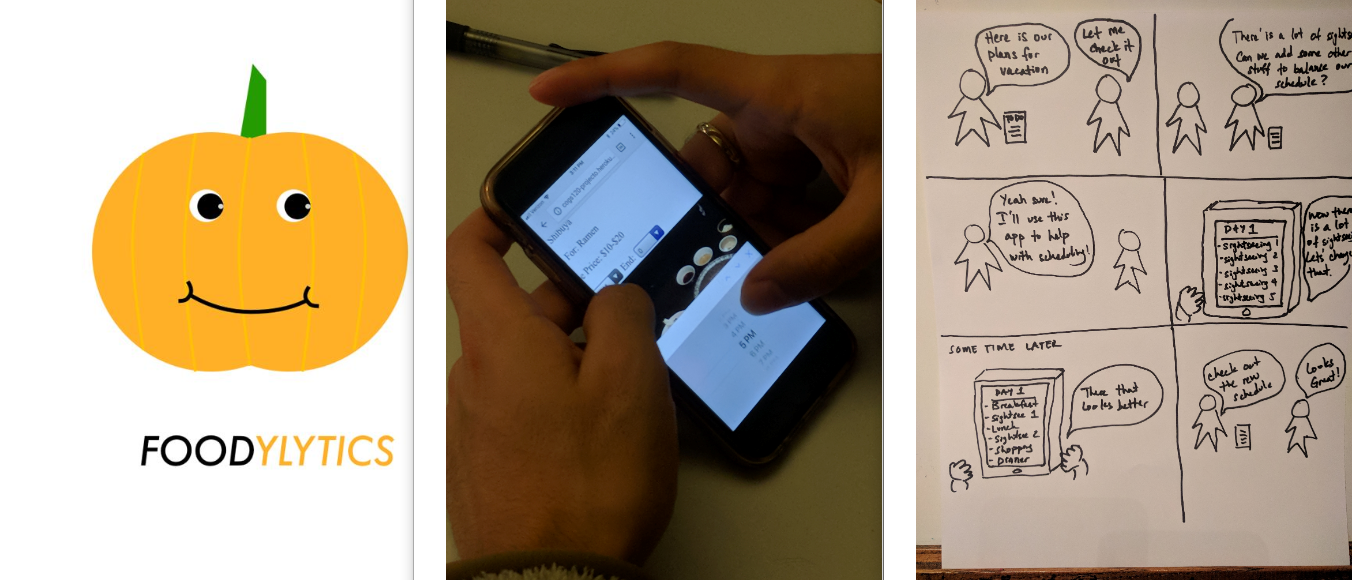 FOODYLYTICS
Shibuya
For: Ramen
Price: $10-$20
End:
3 PM
4 PM
5 PM
6 PM
7 PM
Here is our
plans for
vacation
Let me
check it
out
TO DO
There's a lot of sights
Can we add some other
stuff to balance our
schedule?
Yeah sure!
I'll use this
app to help
with scheduling!
DAY 1
- sightseeing 1
- sightseeing 2
- sightseeing 3
- sightseeing 4
- sightseeing 5
Wow there
is a lot
of sightsee
lets change
that.
SOME TIME LATER
DAY 1
- Breakfast
- sightsee 1
- Lunch
- sightsee 2
- shopping
- Dinner
There that
looks better
check out
the new
schedule
Looks
Great!